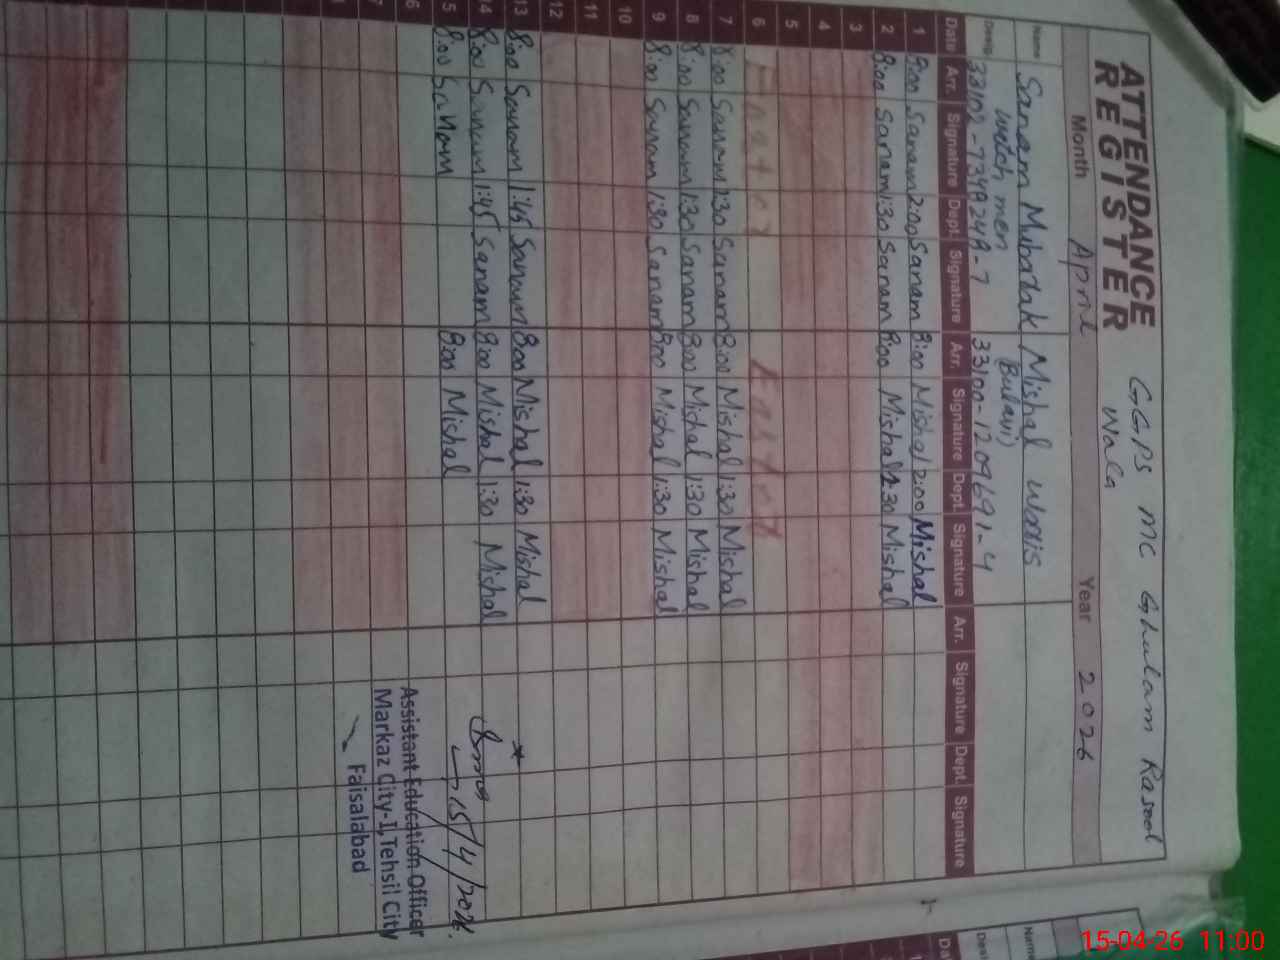 ATTENDANCE REGISTER
GGPS MC Ghulam Rasool Wala
Month April Year 2026
Name Sanam Mubarak Mishal Waris
watch men (Bulavi)
Desig. 33100-1209691-4
Date Arr. Signature Dept. Signature Arr. Signature Dept. Signature Arr. Signature Dept. Signature
1 8:00 Sanam 2:00 Sanam 8:00 Mishal 2:00 Mishal
2 8:00 Sanam 1:30 Sanam 8:00 Mishal 30 Mishal
3
4
5
6
7 8:00 Sanam 1:30 Sanam 8:00 Mishal 1:30 Mishal
8 8:00 Sanam 1:30 Sanam 8:00 Mishal 1:30 Mishal
9 8:00 Sanam 1:30 Sanam 8:00 Mishal 1:30 Mishal
10
11
12
13 8:00 Sanam 1:45 Sanam 8:00 Mishal 1:30 Mishal
14 8:00 Sanam 1:45 Sanam 8:00 Mishal 1:30 Mishal
5 8:00 Sanam 8:00 Mishal
6
7
15/4/2026.
Assistant Education Officer
Markaz City-I, Tehsil City
Faisalabad
Name
Desi
Da
15-04-26 11:00